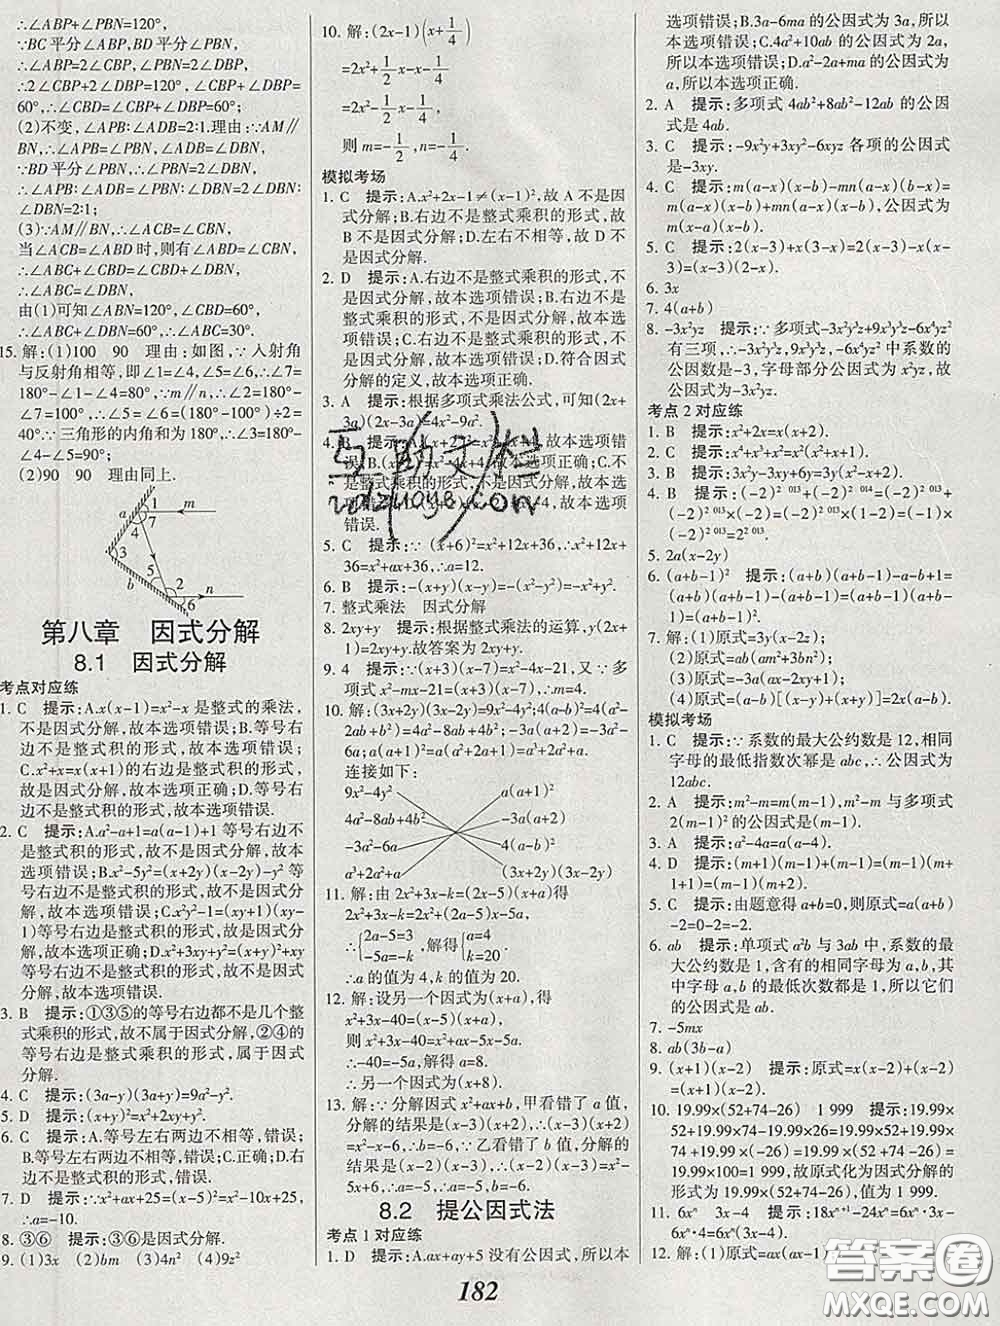 ∴∠ABP+∠PBN=120°,
∵BC平分∠ABP,BD平分∠PBN,
∴∠ABP=2∠CBP,∠PBN=2∠DBP,
∴2∠CBP+2∠DBP=120°,∠CBP+∠DBP=
60°,∴∠CBD=∠CBP+∠DBP=60°;
(2)不变,∠APB∶∠ADB=2∶1.理由:∵AM∥
BN,∴∠APB=∠PBN,∠ADB=∠DBN,
∵BD平分∠PBN,∴∠PBN=2∠DBN,
∴∠APB∶∠ADB=∠PBN∶∠DBN=2∠DBN∶
∠DBN=2∶1;
(3)∵AM∥BN,∴∠ACB=∠CBN,
当∠ACB=∠ABD时,则有∠ABD=∠CBN,
∴∠ABC+∠CBD=∠CBD+∠DBN,
∴∠ABC=∠DBN,
由(1)可知∠ABN=120°,∠CBD=60°,
∴∠ABC+∠DBN=60°,∴∠ABC=30°.
15. 解:(1)100 90 理由:如图,∵入射角
与反射角相等,即∠1=∠4,∠5=∠6,∴∠7=
180°-∠1-∠4=80°,∵m∥n,∴∠2=180°-
∠7=100°,∴∠5=∠6=(180°-100°)÷2=
40°∵三角形的内角和为180°,∴∠3=180°-
∠4-∠5=90°;
(2)90 90 理由同上.
a 1 m
7
4
3
5 2 n
b 6
第八章 因式分解
8.1 因式分解
考点对应练
1. C 提示:A.x(x-1)=x²-x是整式的乘法,
不是因式分解,故本选项错误;B.等号右
边不是整式积的形式,故本选项错误;
C.x²+x=x(x+1)的右边是整式积的形式,
是因式分解,故本选项正确;D.等号右边
不是整式积的形式,故本选项错误.
2. C 提示:A.a²-a+1=a(a-1)+1等号右边不
是整式积的形式,故不是因式分解,故本
选项错误;B.x²-5y²=(x+2y)(x-2y)-y²
等号右边不是整式积的形式,故不是因式
分解,故本选项错误;C.x²y²-1=(xy+1)(xy-
1)等号右边是整式积的形式,故是因式分
解,故本选项正确;D.x²+3xy+y²=(x+y)²+xy
等号右边不是整式积的形式,故不是因式
分解,故本选项错误.
3. B 提示:①③⑤的等号右边都不是几个整
式乘积的形式,故不属于因式分解,②④的
等号右边是整式乘积的形式,属于因式
分解.
4. C 提示:(3a-y)(3a+y)=9a²-y².
5. D 提示:(x+y)²=x²+2xy+y².
6. C 提示:A.等号左右两边不相等,错误;
B.等号左右两边不相等,错误;D.不是整式
乘积的形式,错误.
7. D 提示:∵x²+ax+25=(x-5)²=x²-10x+25,
∴a=-10.
8. ③⑥ 提示:③⑥是因式分解.
9. (1)3x (2)bm (3)4n² (4)9z²
10. 解:(2x-1)(x+1/4)
=2x²+1/2x-x-1/4
=2x²-1/2x-1/4,
则m=-1/2,n=-1/4.
模拟考场
1. C 提示:A.x²+2x-1≠(x-1)²,故A不是因
式分解;B.右边不是整式乘积的形式,故
B不是因式分解;D.左右不相等,故D不
是因式分解.
2. D 提示:A.右边不是整式乘积的形式,不
是因式分解,故本选项错误;B.右边不是
整式乘积的形式,不是因式分解,故本选
项错误;C.右边不是整式乘积的形式,不
是因式分解,故本选项错误;D.符合因式
分解的定义,故本选项正确.
3. A 提示:根据多项式乘法公式,可知(2x+
3a)(2x-3a)=4x²-9a².
4.
是整式乘积的形式,不是因式分解,故本选
项错误.
5. C 提示:∵(x+6)²=x²+12x+36,∴x²+12x+
36=x²+ax+36,∴a=12.
6. B 提示:-(x+y)(x-y)=-(x²-y²)=-x²+y².
7. 整式乘法 因式分解
8. 2xy+y 提示:根据整式乘法的运算,y(2x+
1)=2xy+y.故答案为2xy+y.
9. 4 提示:∵(x+3)(x-7)=x²-4x-21,又∵多
项式x²-mx-21=(x+3)(x-7),∴m=4.
10. 解:(3x+2y)(3x-2y)=9x²-4y²;4(a-b)²=4(a²-
2ab+b²)=4a²-8ab+4b²;-3a(a+2)=-3a²-
6a;a(a+1)²=a(a²+2a+1)=a³+2a²+a.
连接如下:
9x²-4y² a(a+1)²
4a²-8ab+4b² -3a(a+2)
-3a²-6a 4(a-b)²
a³+2a²+a (3x+2y)(3x-2y)
11. 解:由2x²+3x-k=(2x-5)(x+a)得
2x²+3x-k=2x²+(2a-5)x-5a,
∴{2a-5=3 -5a=-k,解得{a=4 k=20.
∴a的值为4,k的值为20.
12. 解:设另一个因式为(x+a),得
x²+3x-40=(x-5)(x+a)
则x²+3x-40=x²+ax-5x-5a.
∴-40=-5a,解得a=8.
∴另一个因式为(x+8).
13. 解:∵分解因式x²+ax+b,甲看错了a值,
分解的结果是(x-3)(x+2),∴(x-3)(x+2)
=x²-x-6,∴b=-6,∵乙看错了b值,分解的
结果是(x-2)(x-3),∴(x-2)(x-3)=x²-
5x+6,∴a=-5,∴a=-5,b=-6.
8.2 提公因式法
考点1对应练
1. D 提示:A.ax+ay+5没有公因式,所以本
选项错误;B.3a-6ma的公因式为3a,所以
本选项错误;C.4a²+10ab的公因式为2a,
所以本选项错误;D.a²-2a+ma的公因式为
a,所以本选项正确.
2. A 提示:多项式4ab²+8ab²-12ab的公因
式是4ab.
3. C 提示:-9x²y+3xy²-6xyz各项的公因式
是-3xy.
4. C 提示:m(a-x)(x-b)-mn(a-x)(b-x)=
m(a-x)(x-b)+mn(a-x)(x-b),公因式为
m(x-a)(x-b).
5. C 提示:2(x-3)+x(3-x)=2(x-3)-x(x-3)
=(x-3)(2-x).
6. 3x
7. 4(a+b)
8. -3x²yz 提示:∵多项式-3x²y³z+9x³y³z-6x⁴yz²
有三项,∴-3x²y³z,9x³y³z,-6x⁴yz²中系数的
公因数是-3,字母部分公因式为x²yz,故
公因式为-3x²yz.
考点2对应练
1. B 提示:x²+2x=x(x+2).
2. C 提示:x²+x²+x²=x²(2+x²+1).
3. B 提示:3x²y-3xy+6y=3y(x²-x+2).
4. B 提示:(-2)²⁰¹³+(-2)²⁰¹⁴=(-2)²⁰¹³+
(-2)²⁰¹³×(-2)=(-2)²⁰¹³×(1-2)=(-1)×
(-2)²⁰¹³=2²⁰¹³.
5. 2a(x-2y)
6. (a+b-1)² 提示:(a+b)(a+b-1)-a-b+1=
(a+b)(a+b-1)-(a+b-1)=(a+b-1)(a+
b-1)=(a+b-1)².
7. 解:(1)原式=3y(x-2z);
(2)原式=(a-3)(a-3+2)=(a-3)(a-1);
(3)原式=-3a(a²-2ax+x²);
(4)原式=(x-a)[(x-b)+(x+b)]=2x(x-a).
模拟考场
1. C 提示:∵系数的最大公约数是12,相同
字母的最低指数次幂是abc,∴公因式为
12abc.
2. A 提示:m²-m=m(m-1),m²-m与多项式
2(m-1)²的公因式是(m-1).
3. A 提示:a²-4a=a(a-4).
4. D 提示:(m+1)(m-1)+(m-1)=(m-1)(m+
1+1)=(m-1)(m+2).
5. C 提示:由题意得a+b=0,则原式=a(a+b)
-2=0-2=-2.
6. ab 提示:单项式a²b与3ab中,系数的最
大公约数是1,含有的相同字母为a,b,其
中字母a,b的最低次数都是1,所以它们
的公因式是ab.
7. -5mx
8. ab(3b-a)
9. (x+1)(x-2) 提示:原式=x(x-2)+(x-2)
=(x+1)(x-2).
10. 19.99×(52+74-26) 1 999 提示:19.99×
52+19.99×74-19.99×26=19.99×(52+
74-26)=19.99×100=1 999,故原式化为因式分解的
形式为19.99×(52+74-26),值为1 999.
11. 6xⁿ 3x-4 提示:18xⁿ⁺¹-24xⁿ=6xⁿ·3x-
6xⁿ·4=6xⁿ(3x-4).
12. 解:(1)原式=ax(ax-1)
182
答案圈
MXQE.COM